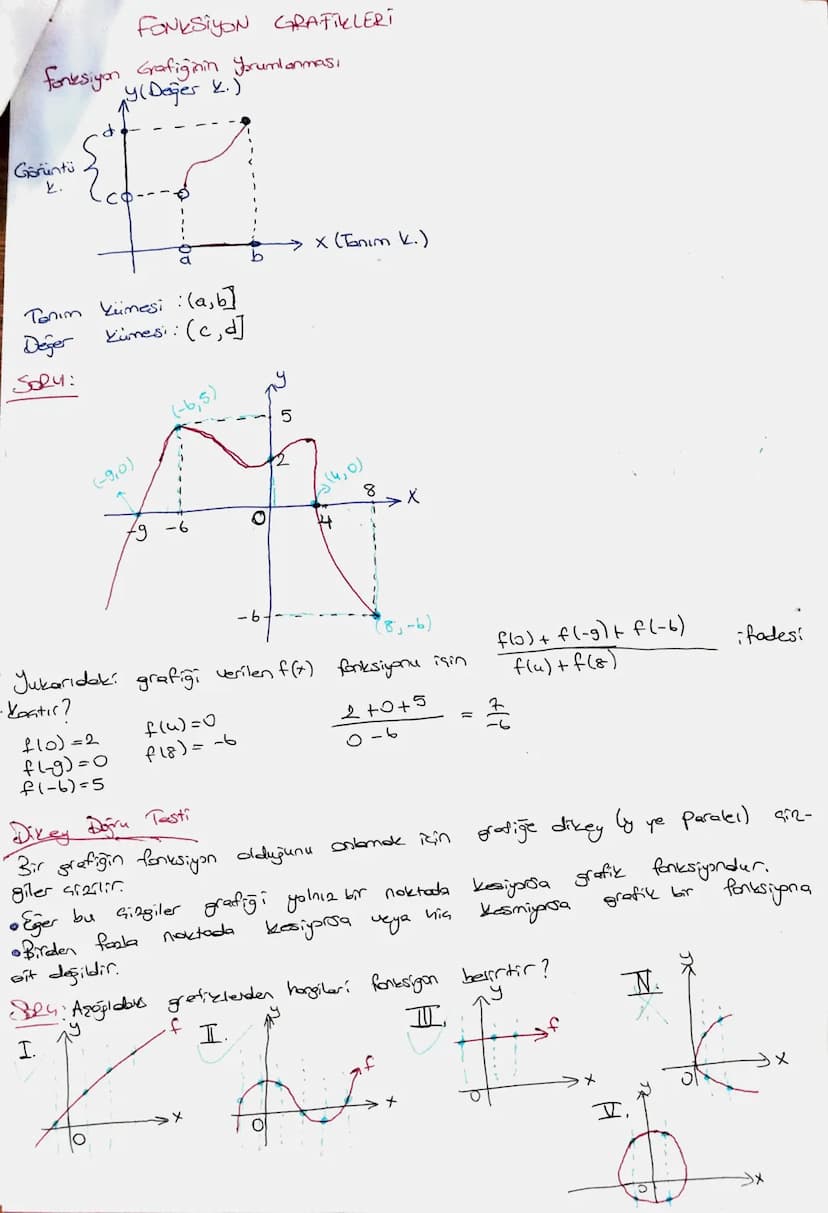 FONKSİYON GRAFİKLERİ
Fonksiyon Grafiğinin Yorumlanması
y (Değer K.)
d
Görüntü
K.
c
x (Tanım K.)
a
b
Tanım Kümesi : (a,b]
Değer Kümesi : (c,d]
Soru:
y
(-6,5)
5
(-9,0)
2
(4,0)
8
x
-9
-6
0
4
-6
(8,-6)
Yukarıdaki grafiği verilen f(x) fonksiyonu için
f(0) + f(-9) + f(-6)
f(4) + f(8)
ifadesi
kaçtır?
f(0) = 2
f(4) = 0
2+0+5
0-6
= 7
-6
f(-9) = 0
f(8) = -6
f(-6) = 5
Dikey Doğru Testi
Bir grafiğin fonksiyon olduğunu anlamak için grafiğe dikey (y ye paralel) çiz-
giler çizilir.
• Eğer bu çizgiler grafiği yalnız bir noktada kesiyorsa grafik fonksiyondur.
• Birden fazla noktada kesiyorsa veya hiç kesmiyorsa grafik bir fonksiyona
ait değildir.
Soru: Aşağıdaki grafiklerden hangileri fonksiyon belirtir?
I.
y
f
x
0
II.
y
f
x
0
III.
y
f
x
0
IV.
y
x
0
V.
y
x
0